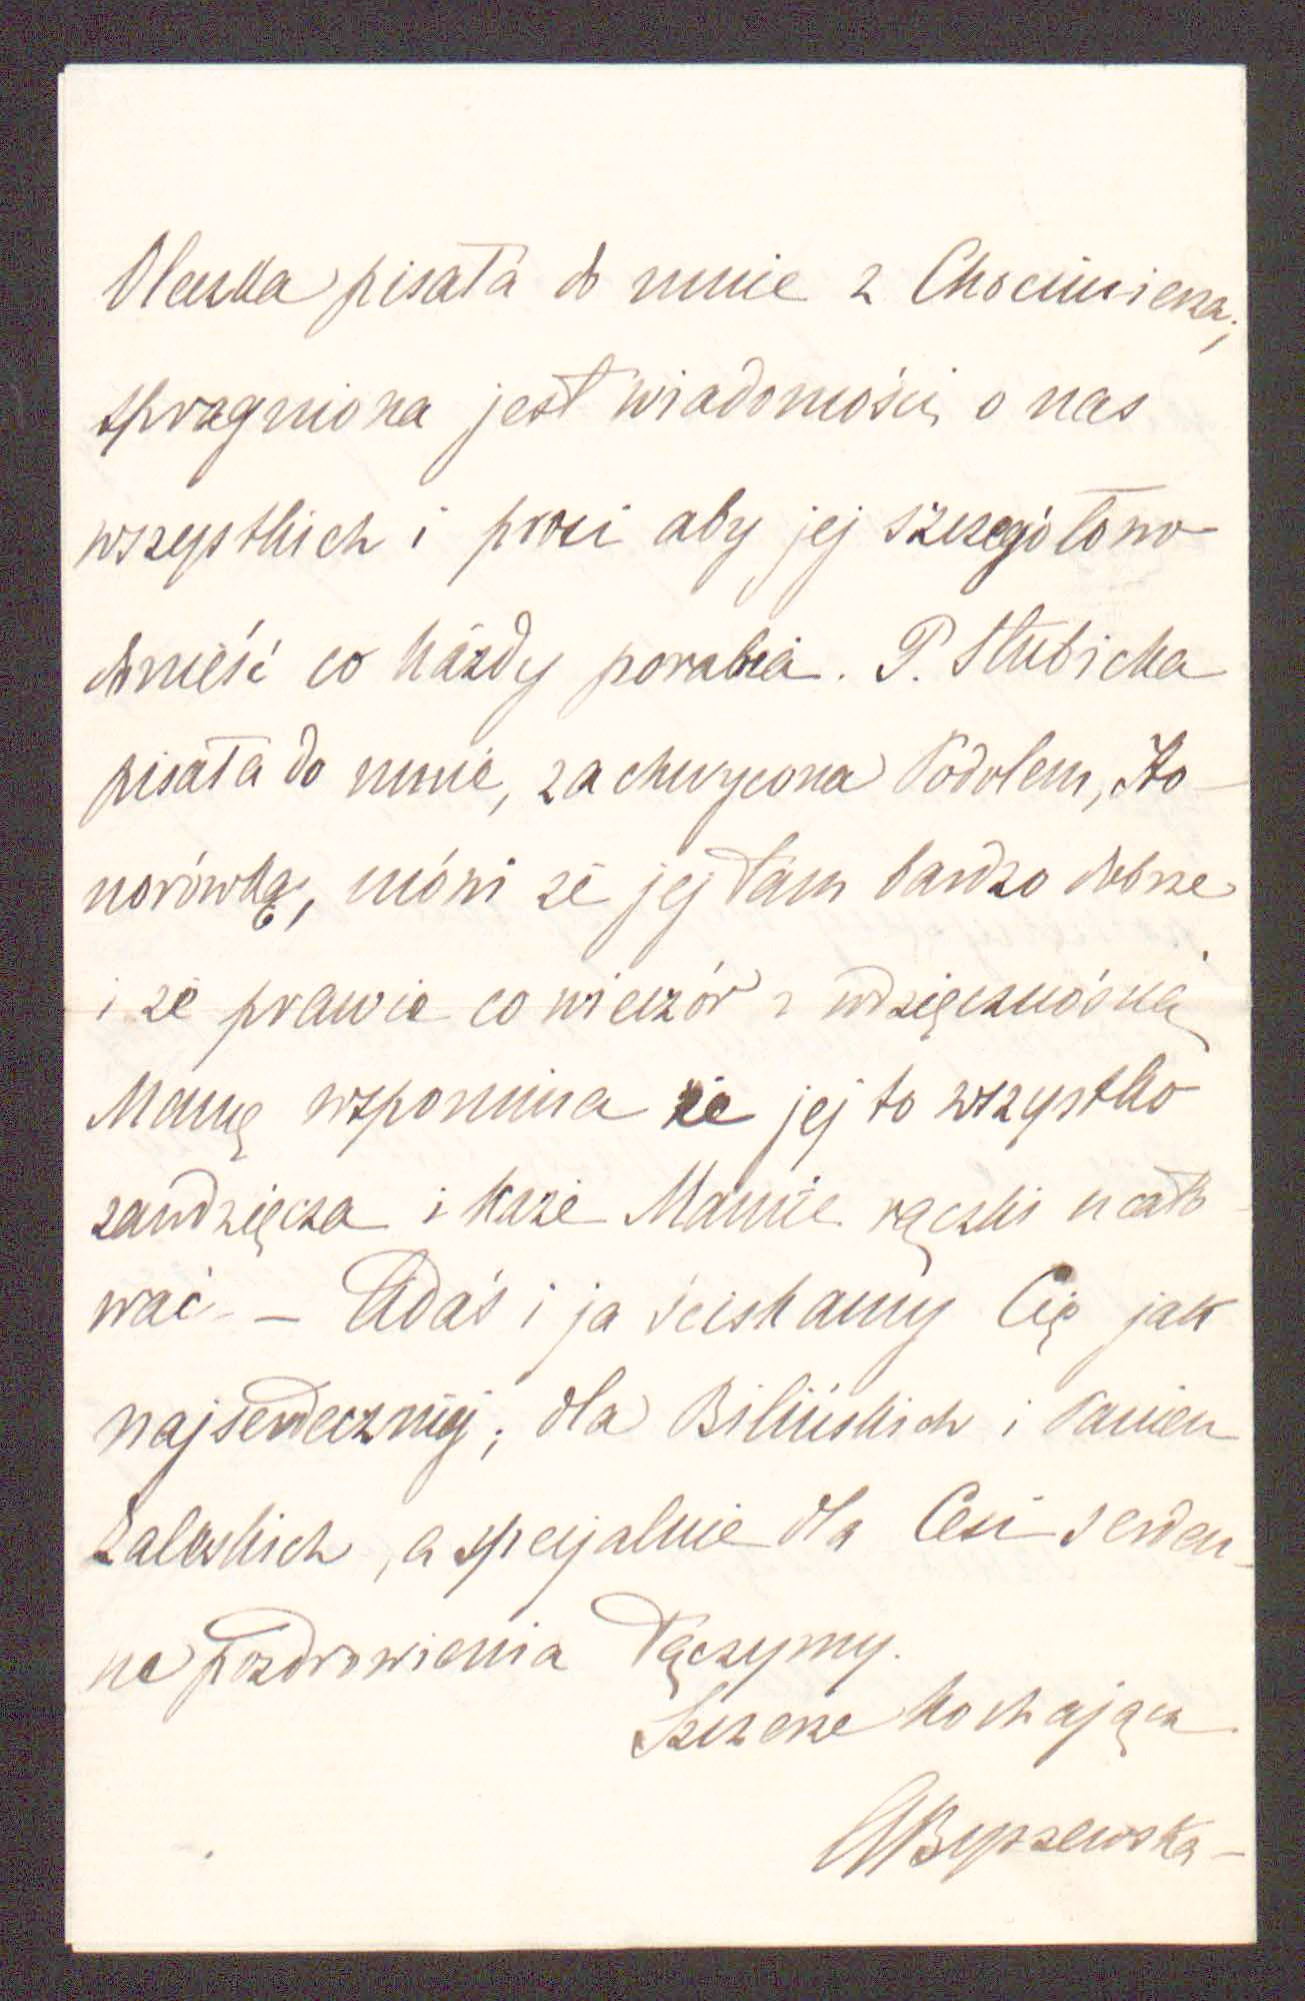 Oleszka pisała do mnie z Chocimierza;
spragniona jest wiadomości o nas
wszystkich i prosi aby jej szczegółowo
donieść co każdy porabia. P. Słubicka
pisała do mnie, zachwycona Podolem, Ho-
norówką, mówi że jej tam bardzo dobrze
i że prawie co wieczór z wdzięcznością
Mamę wspomina że jej to wszystko
zawdzięcza i każe Mamie rączki ucało-
wać – Adaś i ja ściskamy Cię jak
najserdeczniej; dla Bilińskich i Panien
Zaleskich, a specjalnie dla Cesi serdecz-
ne pozdrowienia łączymy.
Szczerze kochająca
Byszewska –